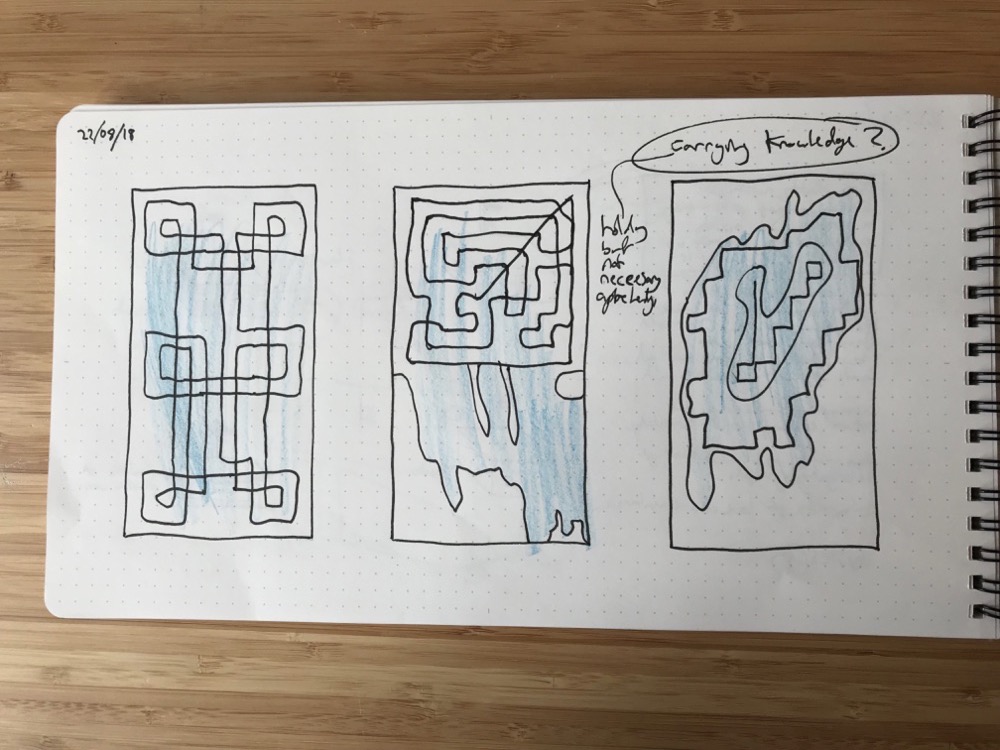 22/09/18
Carrying Knowledge?
holding
but
not
necessary